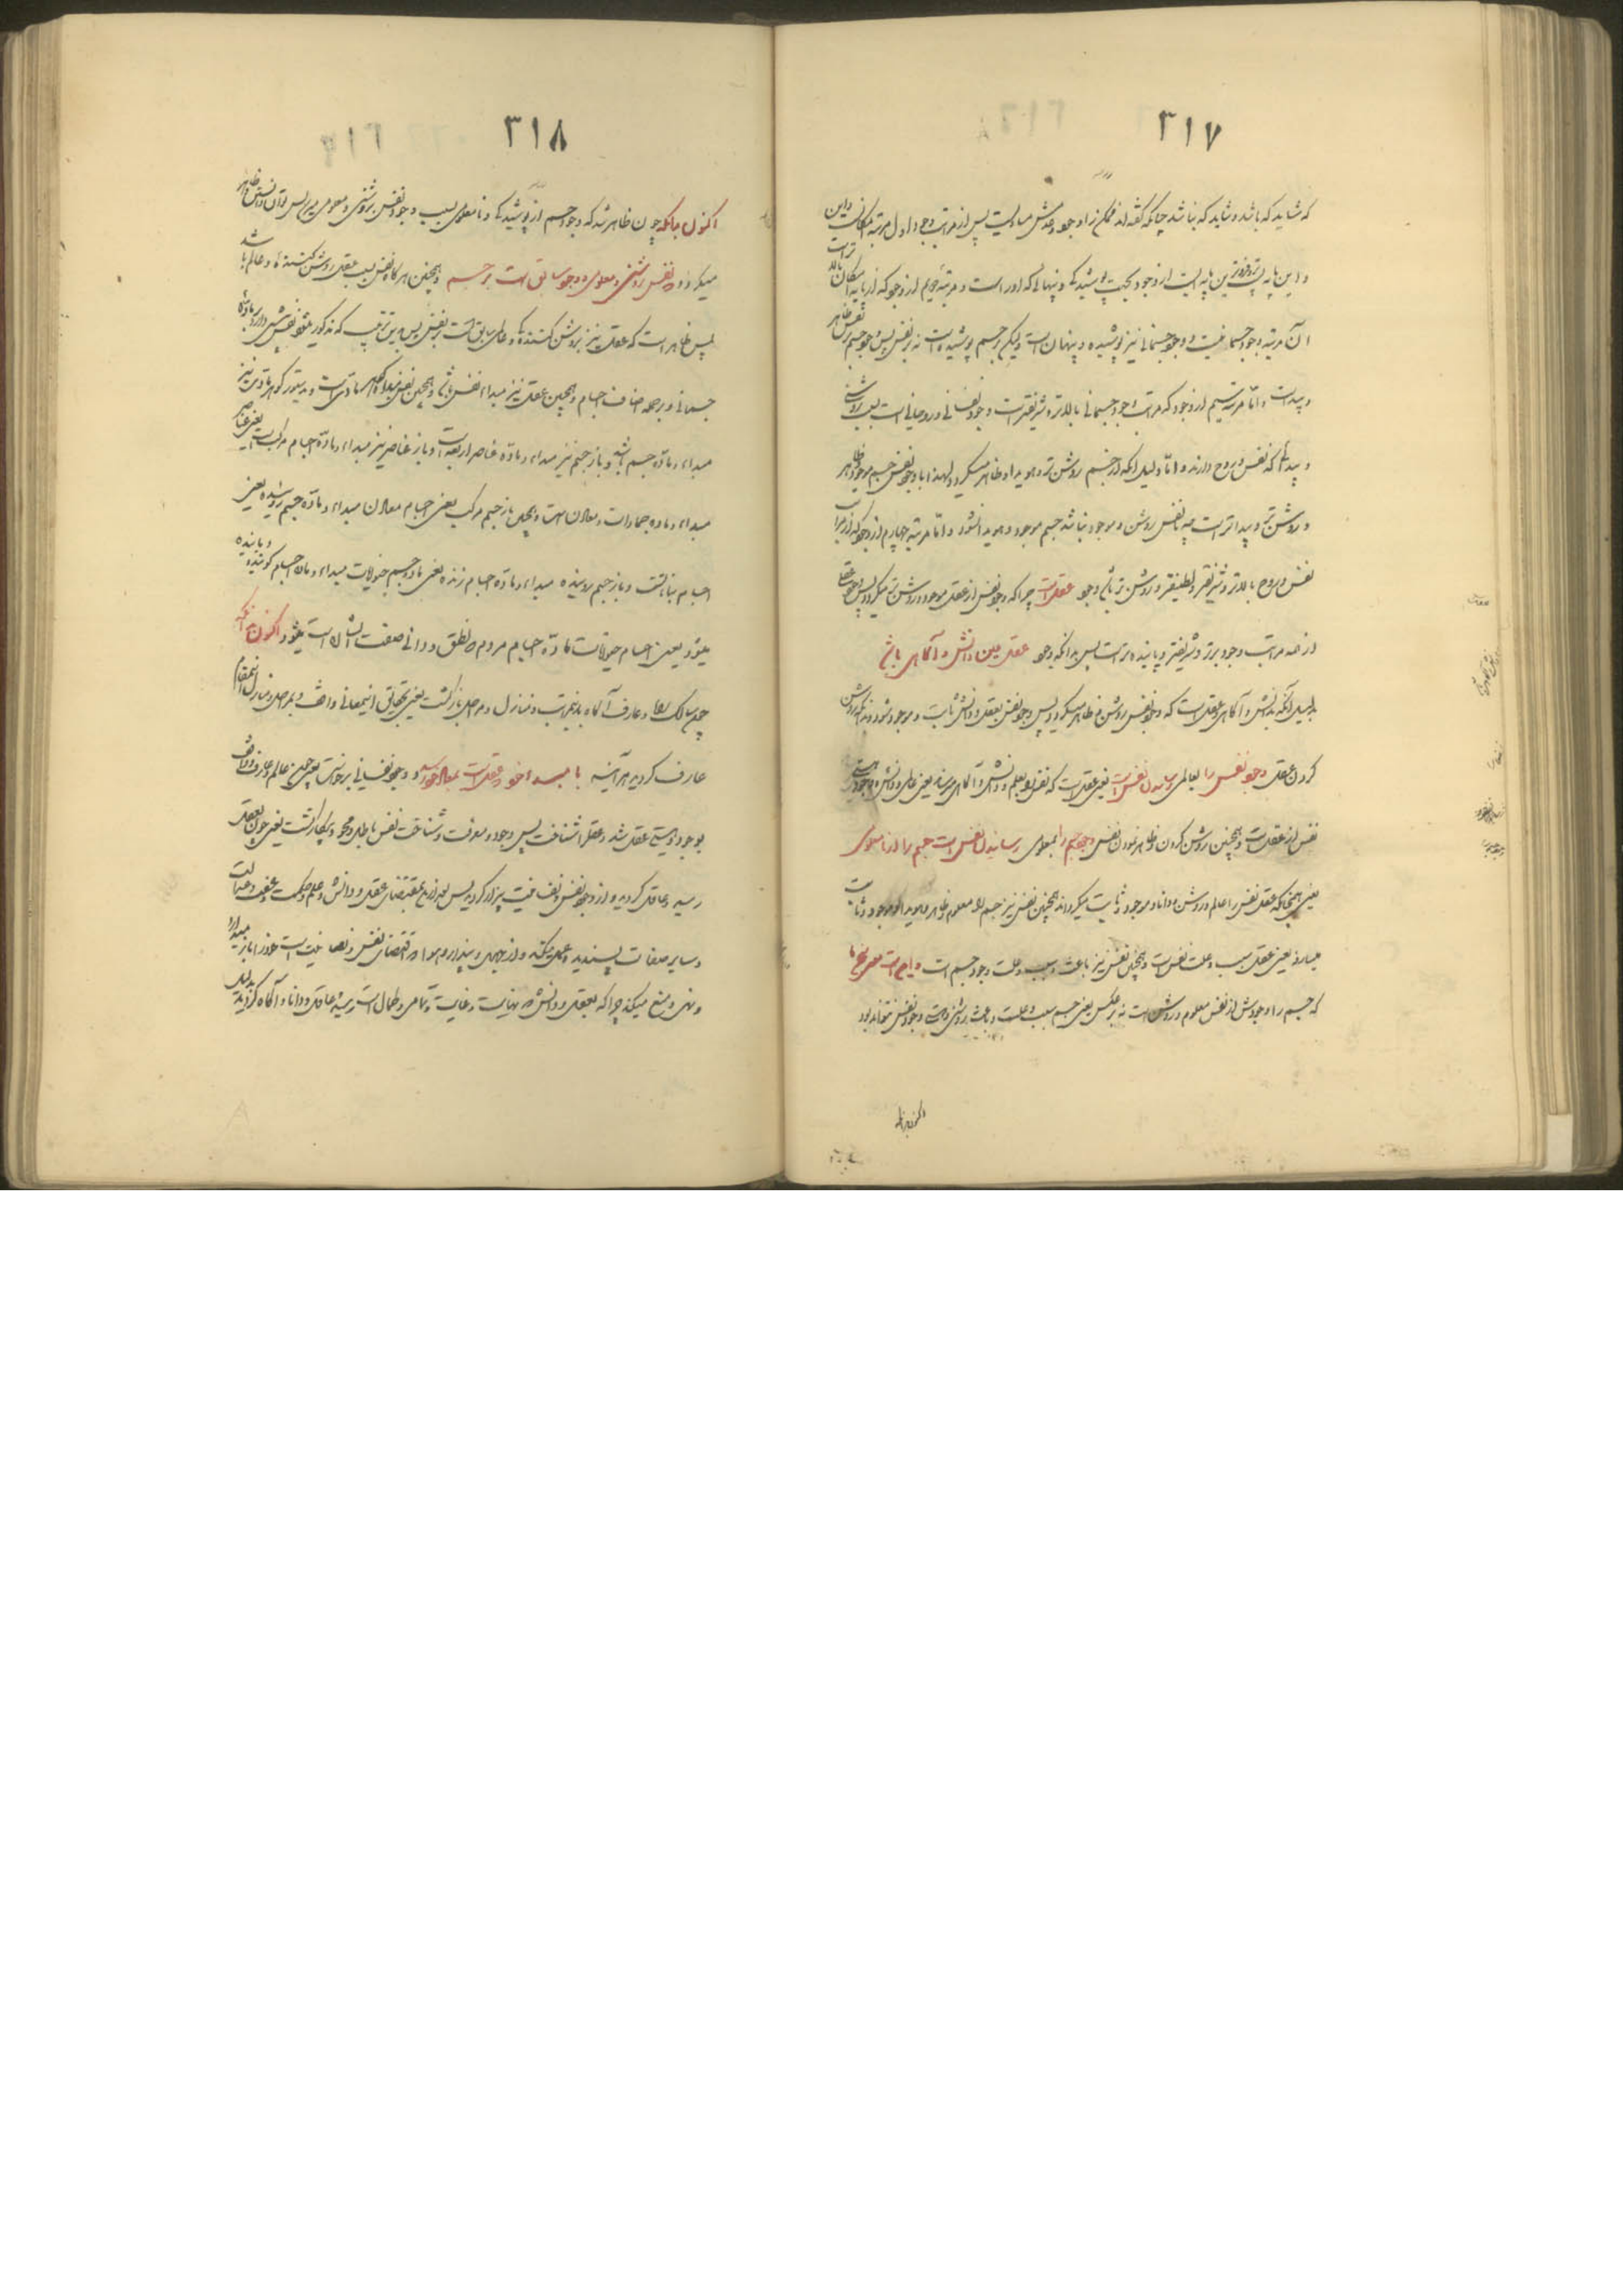 ٣١٧
که شاید که باشد و شاید که نباشد چنانکه گفته‌اند ممکن را وجود و عدمش مساویست پس از مراتب وجود اول مرتبه امکانست و این
و این پایه پست‌تر و فروترین پایه ایست از وجود بجهت پوشیدگی و پنهانی که او راست و مرتبه دویم از وجود که از پایه امکان بالاتر است
آن مرتبه وجود جسمانیت و وجود جسمانی نیز پوشیده و پنهان است ولیکن بر جسم پوشیده است نه بر نفس پس وجود جسم بر نفس ظاهر
و پیداست و امّا مرتبه سیم از وجود که از مراتب وجود جسمانی بالاتر و شریفتر است وجود نفسانی و روحانی است بسبب روشنی
و پیدائی که نفس و روح دارند و امّا دلیل آنکه از جسم روشن‌تر و هویدا و ظاهر میگردد لهذا با وجود نفس جسم موجود و ظاهر
و روشن‌تر و پیداتر است چه تا نفس روشن و موجود نباشد جسم موجود و هویدا نشود و امّا مرتبه چهارم از وجود که از مراتب
نفس و روح بالاتر و شریفتر و لطیفتر و روشن‌تر باشد وجود عقل است چرا که وجود نفس از عقل موجود و روشن‌تر میگردد پس وجود عقل
از همه مراتب وجود برتر و شریفتر و پاینده‌تر است پس بدانکه وجود عقل عین دانش و آگاهی باشد
بدلیل آنکه بدانش و آگاهی عقل است که وجود نفس روشن و ظاهر میگردد پس وجود نفس بعقل و دانش ثابت و موجود شود و بدانکه روشن
کردن عقل وجود نفس را بعالمی رسانیدن نفس است یعنی عقل است که نفس را بعلم و دانش و آگاهی میرساند یعنی عالمی و دانش و موجودیت
نفس از عقل است و همچنین روشن کردن و ظاهر نمودن نفس وجود جسم را بمعلومی رسانیدن نفس است جسم را از نامعلومی
یعنی همچنانکه عقل نفس را عالم و روشن و دانا و موجود و ثابت میگرداند همچنین نفس نیز جسم را معلوم و ظاهر و هویدا و موجود و ثابت
میسازد یعنی عقل سبب و علت نفس است و همچنین نفس نیز باعث و سبب و علت وجود جسم است
که جسم را وجودش از نفس معلوم و روشن است نه بر عکس یعنی جسم سبب و علت و باعث روشنی و هستی وجود نفس نتواند بود
٣١٨
اکنون بدانکه چون ظاهر شد که وجود جسم از پوشیدگی و نامعلومی بسبب وجود نفس بروشنی و معلومی میرسد
میگردد و نفس بروشنی و معلومی و وجود سابق است بر جسم و همچنین هرگاه نفس بسبب عقل روشن کننده و عالم باشد
پس ظاهر است که عقل نیز بروشن کنندگی و عالمی سابق است بر نفس پس بدین ترتیب که مذکور میشود نفس پیشی دارد بر ماده
جسمانی و بر همه اصناف اجسام و همچنین عقل نیز مبداء نفس باشد و همچنین نفس مبداء گوهر مادّی است و بدستور گوهر مادّی نیز
مبداء و مادّه جسم باشد و باز جسم نیز مبداء و مادّه عناصر اربعه است و باز عناصر نیز مبداء و مادّه اجسام مرکب است یعنی عناصر
مبداء و ماده جمادات و معادن است و همچنین باز جسم مرکب یعنی اجسام معادن مبداء و مادّه جسم روینده یعنی
اجسام نباتست و باز جسم روینده مبداء و مادّه اجسام زنده یعنی ماده جسم حیوانات مبداء و ماده اجسام گوینده و یابنده
میشود یعنی اجسام حیوانات مادّه اجسام مردم که نطق و دانی صفت ایشان است میشود اکنون بدانکه
چون سالک بینا و عارف آگاه بدین مراتب و منازل و مراحل بازگشت یعنی بحقایق این معانی واقف و بمراحل و منازل این مقام
عارف گردید هر آینه با مبداء خود که عقل است بمعاد خود رسد و وجود نفسانی برخاست یعنی چون عالم و عارف و واقف
بوجود و هستی عقل شد و عقل را شناخت پس وجود و معرفت و شناخت نفس باطل و محو و بیکار گشت یعنی چون بعقل
رسید و عاقل گردید و از وجود نفس و نفسانیت بیزار گردید پس بعد از این بمقتضای عقل و دانش و علم و حکمت و عفت و عدالت
و سایر صفات پسندیده عمل میکند و از جهل و پندار و هوا که مقتضای نفس و نفسانیت است خود را باز میدارد
و نهی و منع میکند چرا که بعقل و دانش که نهایت و غایت و تمامی و کمال است رسیده عاقل و دانا و آگاه گردیده